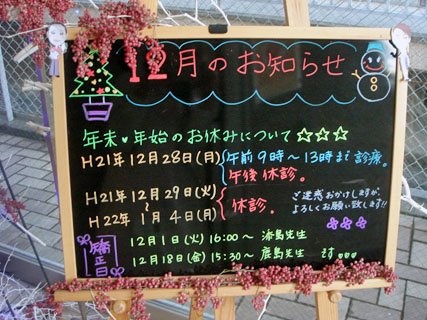 12月のお知らせ
年末・年始のお休みについて☆☆☆
H21年12月28日(月) 午前9時～13時まで診療。
午後休診。
H21年12月29日(火)
～
H22年1月4日(月)
休診。
ご迷惑おかけしますが、
よろしくお願い致します!!
矯正日
12月1日(火)16:00～ 海島先生
12月18日(金)15:30～ 鹿島先生 です